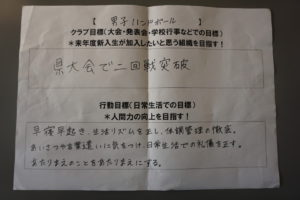 【 男子ハンドボール 】
クラブ目標(大会・発表会・学校行事などでの目標)
*来年度新入生が加入したいと思う組織を目指す!
県大会で二回戦突破
行動目標(日常生活での目標)
*人間力の向上を目指す!
早寝早起き、生活リズムを正し、体調管理の徹底。
あいさつや言葉遣いに気をつけ、日常生活での礼儀を正す。
あたりまえのことをあたりまえにする。